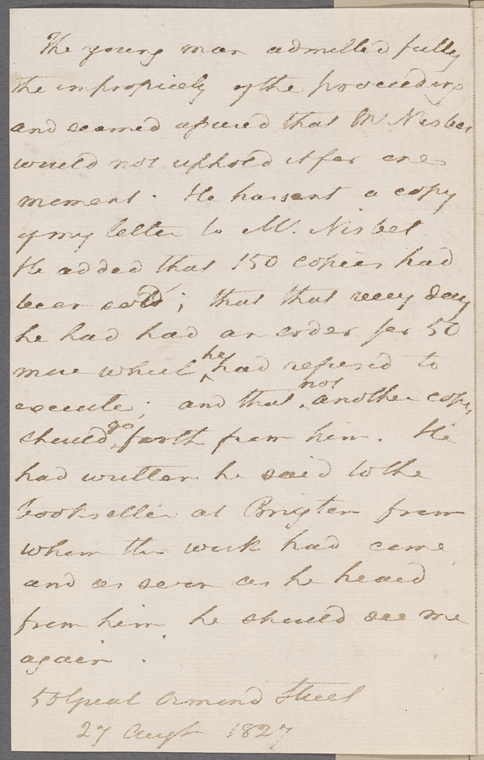 The young man admitted fully
the impropriety of the proceeding
and seemed assured that Mr Nisbet
would not uphold it for one
moment. He has sent a copy
of my letter to Mr. Nisbet
He added that 150 copies had
been sold; that that very day
he had had an order for 50
more which he had refused to
execute; and that not another copy
should go forth from him. He
had written he said to the
bookseller at Brigton from
whom the work had come
and as soon as he heard
from him he should see me
again.
50 Great Ormond Street
27 Augt 1827